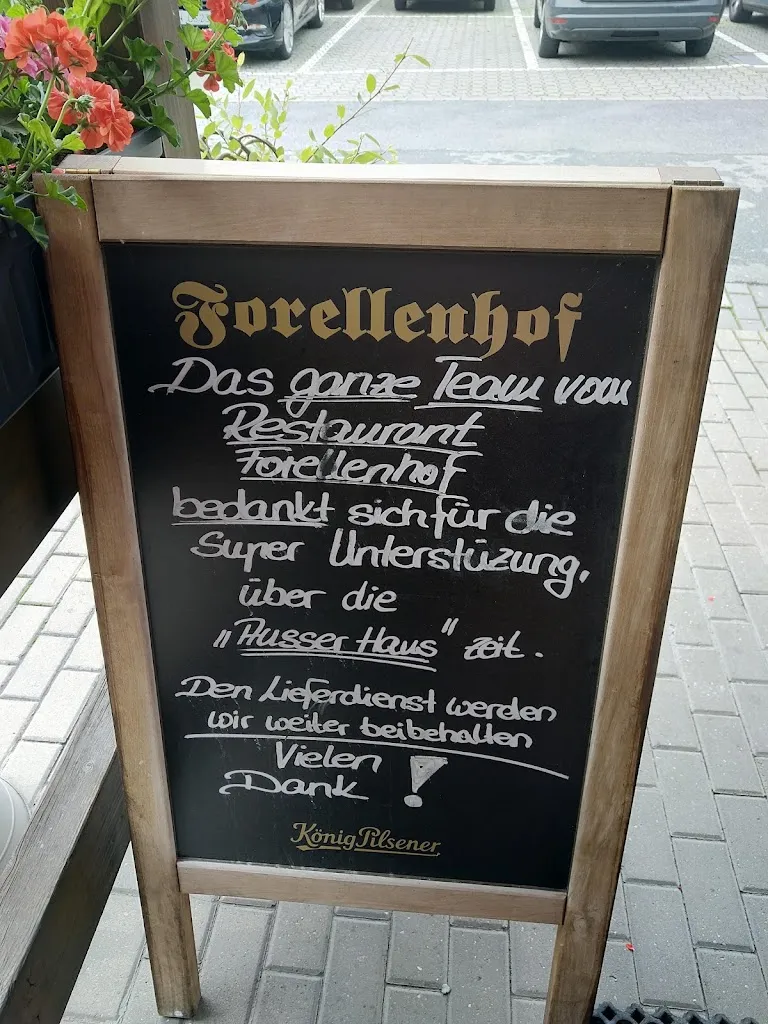 Forellenhof
Das ganze Team vom
Restaurant
Forellenhof
bedankt sich für die
Super Unterstüzung,
über die
„Ausser Haus" zeit.
Den Lieferdienst werden
wir weiter beibehalten
Vielen
Dank !
König Pilsener